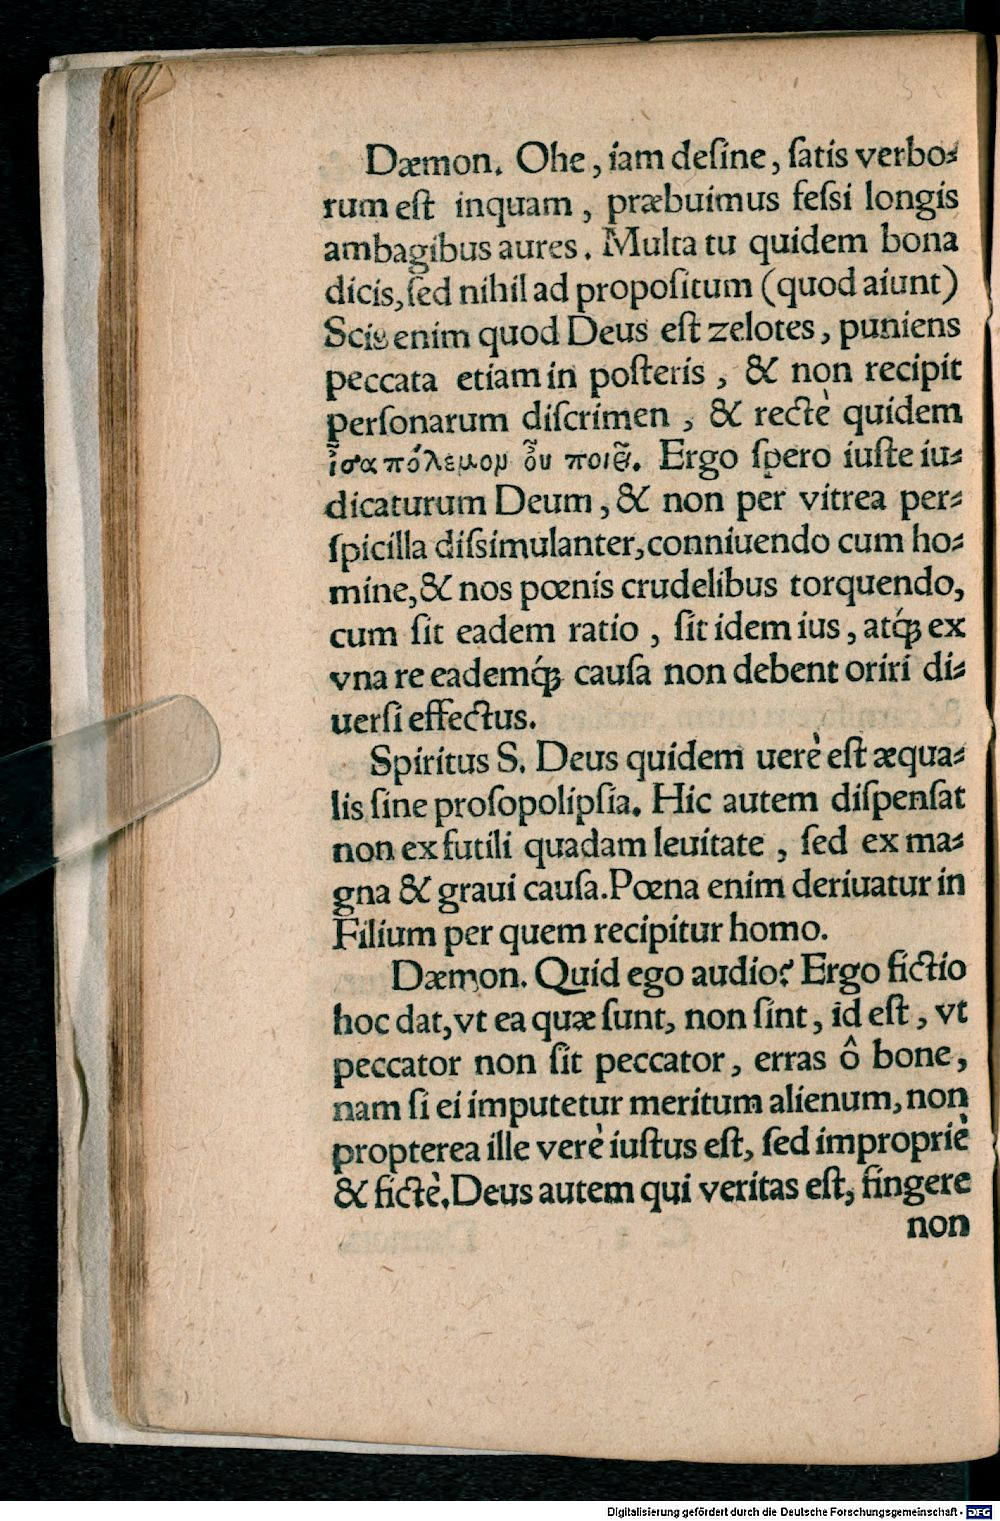 Dæmon. Ohe, iam deſine, ſatis verbo⸗
rum eſt inquam, præbuimus feſsi longis
ambagibus aures. Multa tu quidem bona
dicis, ſed nihil ad propoſitum (quod aiunt)
Scis enim quod Deus eſt zelotes, puniens
peccata etiam in poſteris, & non recipit
perſonarum diſcrimen, & rectè quidem
Ergo ſpero iuſte iu⸗
dicaturum Deum, & non per vitrea per⸗
ſpicilla diſsimulanter, conniuendo cum ho⸗
mine, & nos pœnis crudelibus torquendo,
cum ſit eadem ratio, ſit idem ius, atq́ꝫ ex
vna re eademq́ꝫ cauſa non debent oriri di⸗
uerſi effectus.
Spiritus S. Deus quidem uerè eſt æqua⸗
lis ſine proſopolipſia. Hic autem diſpenſat
non ex futili quadam leuitate, ſed ex ma⸗
gna & graui cauſa. Pœna enim deriuatur in
Filium per quem recipitur homo.
Dæmon. Quid ego audio? Ergo fictio
hoc dat, vt ea quæ ſunt, non ſint, id eſt, vt
peccator non ſit peccator, erras ô bone,
nam ſi ei imputetur meritum alienum, non
propterea ille verè iuſtus eſt, ſed impropriè
& fictè. Deus autem qui veritas eſt, fingere
non
Digitalisierung gefördert durch die Deutsche Forschungsgemeinschaft - DFG